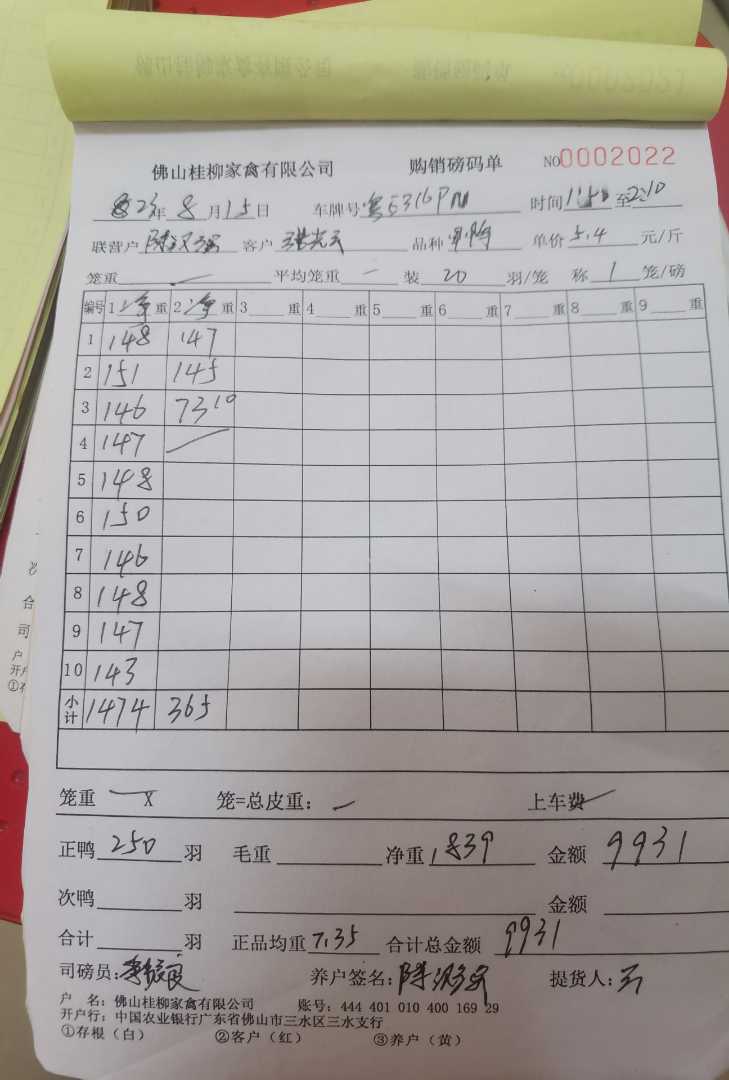 佛山桂柳家禽有限公司 购销磅码单 NO0002022
23年8月15日 车牌号粤E316PM 时间1:50至2:10
联营户 客户 品种 单价5.4元/斤
笼重 — 平均笼重 — 装20羽/笼 称1笼/磅
编号 1净重 2净重 3重 4重 5重 6重 7重 8重 9重
1 148 147
2 151 145
3 146 73 10
4 147
5 148
6 150
7 146
8 148
9 147
10 143
小计 1474 365
笼重 — X 笼=总皮重: — 上车费
正鸭250羽 毛重 净重1839 金额9931
次鸭 羽 金额
合计 羽 正品均重7.35 合计总金额9931
司磅员: 养户签名: 提货人:
户 名: 佛山桂柳家禽有限公司 账号: 444 401 010 400 169 29
开户行: 中国农业银行广东省佛山市三水区三水支行
①存根（白） ②客户（红） ③养户（黄）